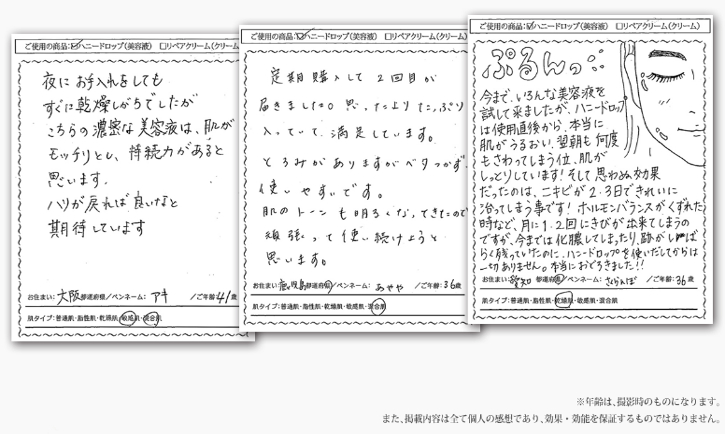 ご使用の商品:☑ハニードロップ(美容液) □リペアクリーム(クリーム
夜にお手入れをしても
すぐに乾燥しがちでしたが
こちらの濃密な美容液は、肌が
モッチリとし、持続力があると
思います.
ハリが戻れば良いなと
期待しています
お住まい:大阪都道府県/ペンネーム: アキ /ご年齢41歳
肌タイプ:普通肌・脂性肌・乾燥肌・敏感肌・混合肌
ご使用の商品:☑ハニードロップ(美容液) □リペアクリーム(クリーム
定期購入して2回目が
届きました。思ったよりたっぷり
入っていて満足しています。
とろみがありますがベタつかず、
使いやすいです。
肌のトーンも明るくなってきたので
頑張って使い続けようと
思います。
お住まい:鹿児島都道府県/ペンネーム: あやや /ご年齢:36歳
肌タイプ:普通肌・脂性肌・乾燥肌・敏感肌・混合肌
ご使用の商品:☑ハニードロップ(美容液) □リペアクリーム(クリーム)
ぷるんっ
今まで、いろんな美容液を
試して来ましたが、ハニードロップ
は使用直後から、本当に
肌がうるおい、翌朝も何度
もさわってしまう位、肌が
しっとりしています!そして思わぬ効果
だったのは、ニキビが2.3日できれいに
治ってしまう事です!ホルモンバランスがくずれた
時など、月に1.2回にきびが出来てしまうの
ですが、今までは化膿してしまったり、跡がしば
らく残っていたのに、ハニードロップを使いだしてからは
一切ありません。本当におどろきました!!
お住まい:愛知都道府県/ペンネーム: さくらんぼ /ご年齢:36歳
肌タイプ:普通肌・脂性肌・乾燥肌・敏感肌・混合肌
※年齢は、撮影時のものになります。
また、掲載内容は全て個人の感想であり、効果・効能を保証するものではありません。